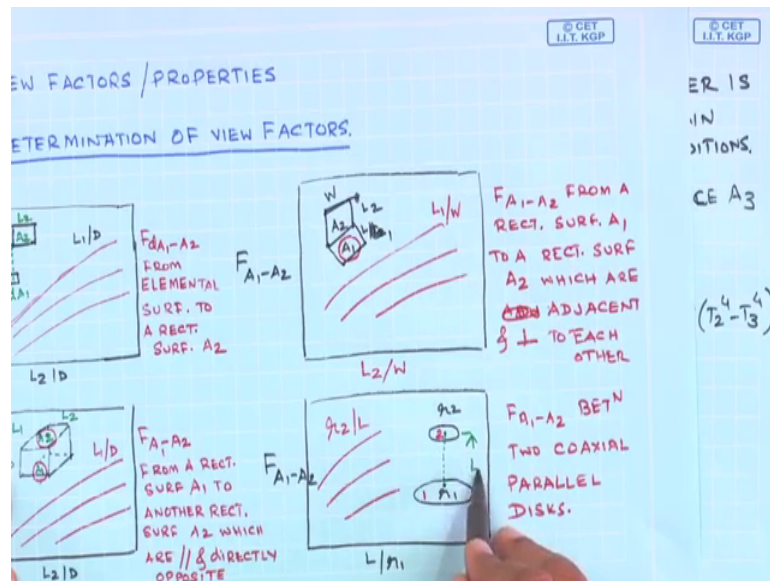 © CET
I.I.T. KGP
© CET
I.I.T. KGP
EW FACTORS/PROPERTIES
ETERMINATION OF VIEW FACTORS.
ER IS
IN
DITIONS.
CE A3
(T2^4-T3^4)
L2
A2
dA1
L1/D
L2/D
FdA1-A2
FROM
ELEMENTAL
SURF. TO
A RECT.
SURF. A2
FA1-A2
W
L2
A2
A1
L1/W
L2/W
FA1-A2 FROM A
RECT. SURF. A1
TO A RECT. SURF
A2 WHICH ARE
ADJACENT
& ⊥ TO EACH
OTHER
L1
L2
A2
A1
L1/D
L2/D
FA1-A2
FROM A RECT.
SURF A1 TO
ANOTHER RECT.
SURF A2 WHICH
ARE // & DIRECTLY
OPPOSITE
FA1-A2
r2/L
r2
2
L
1
r1
L/r1
FA1-A2 BETN
TWO COAXIAL
PARALLEL
DISKS.